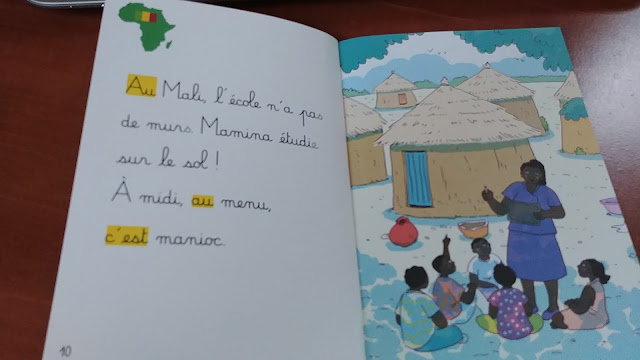 Au Mali, l'école n'a pas
de murs. Mamina étudie
sur le sol !
À midi, au menu,
c'est manioc.
10